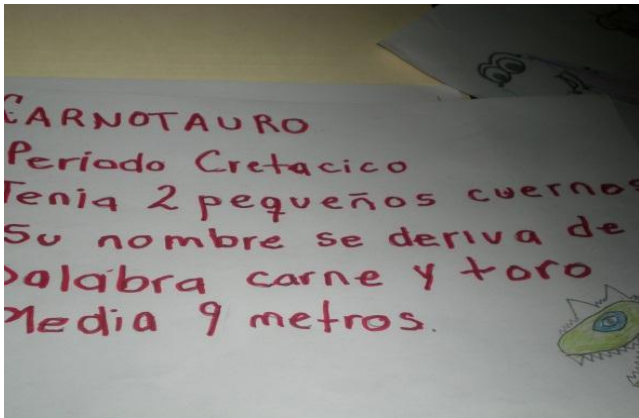 CARNOTAURO
Periodo Cretacico
Tenia 2 pequeños cuernos
Su nombre se deriva de
palabra carne y toro
Media 9 metros.